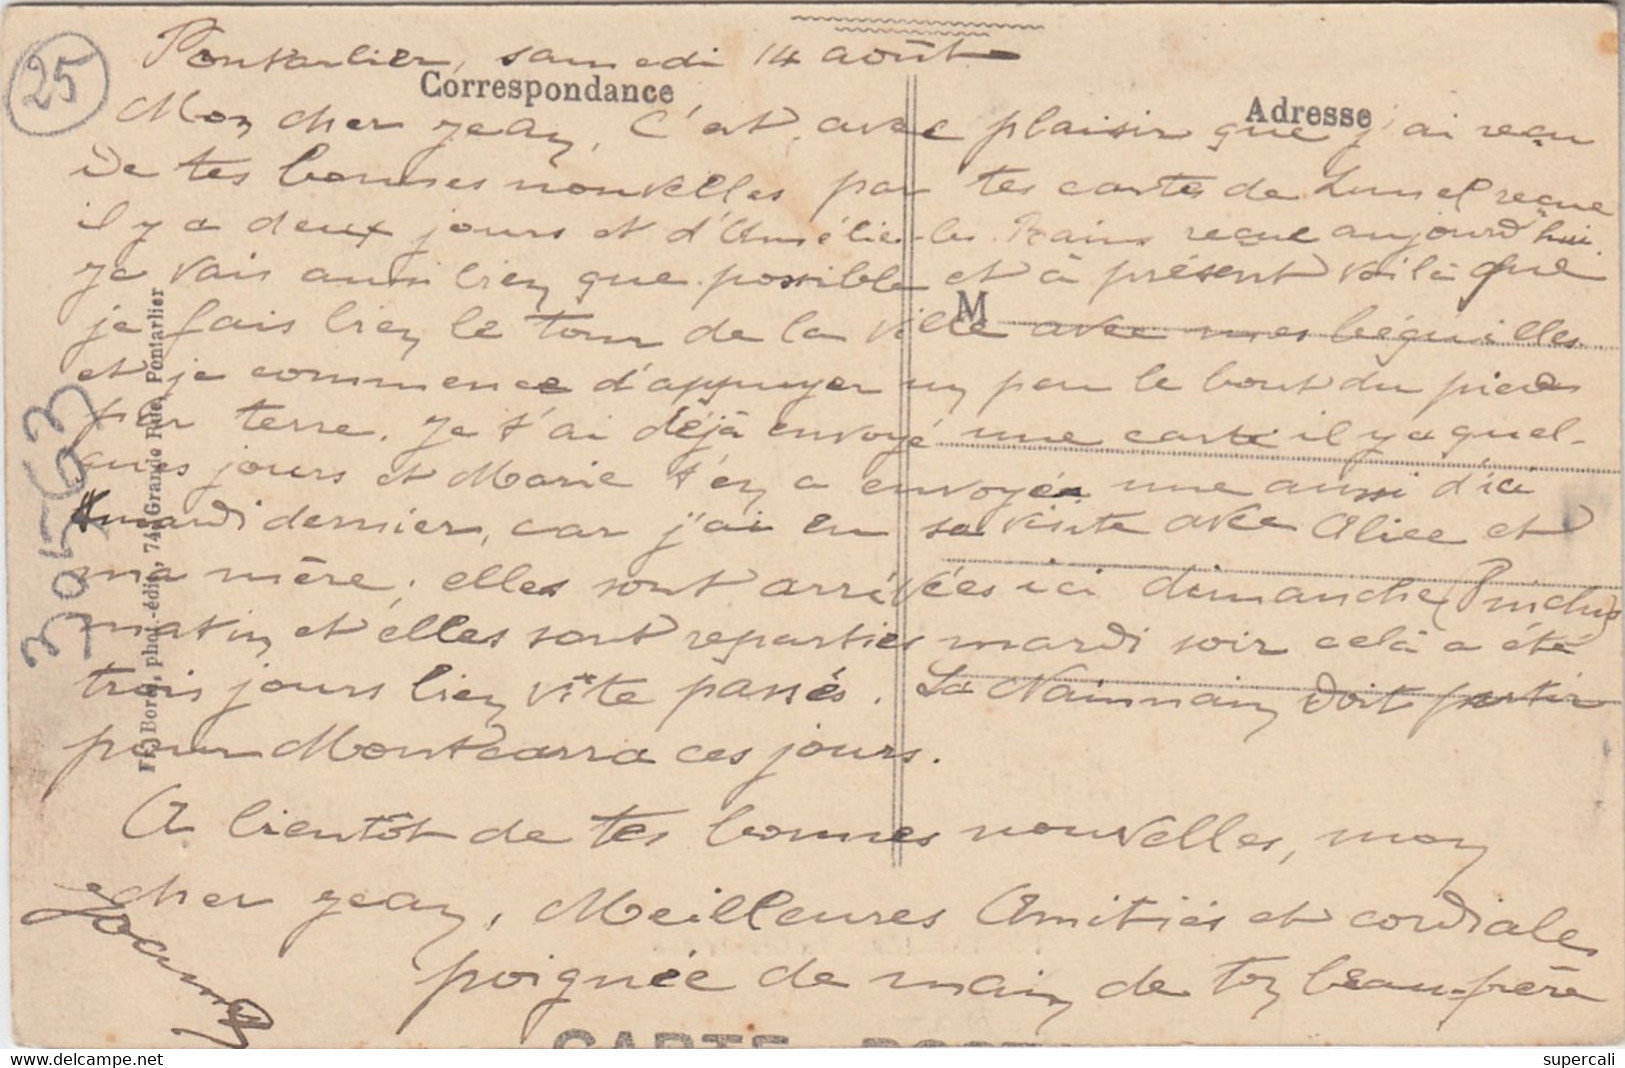 25
Pontarlier, samedi 14 août
Correspondance
Adresse
Mon cher Jean, C'est avec plaisir que j'ai reçu
de tes bonnes nouvelles par tes cartes de Lunel reçue
il y a deux jours et d'Amélie-les-Bains reçue aujourd'hui.
Je vais aussi bien que possible et à présent voilà que
M
je fais bien le tour de la ville avec mes béquilles
et je commence d'appuyer un peu le bout du pied
par terre. Je t'ai déjà envoyé une carte il y a quel-
ques jours et Marie t'en a envoyée une aussi d'ici
mardi dernier, car j'ai eu sa visite avec Alice et
ma mère, elles sont arrivées ici dimanche
matin et elles sont reparties mardi soir celà a été
trois jours bien vite passés. La doit partir
pour Montcarra ces jours.
A bientôt de tes bonnes nouvelles, mon
cher Jean, Meilleures Amitiés et cordiale
poignée de main de ton beau-père
Joanny
30563
Borel, phot.-édit., 74, Grande Rue, Pontarlier
CARTE POSTALE
supercali